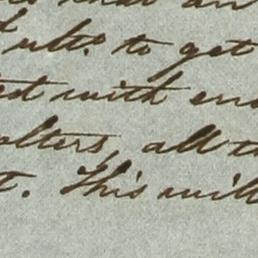 that an
ulto. to get
ed with en
olters, all t
t. This will